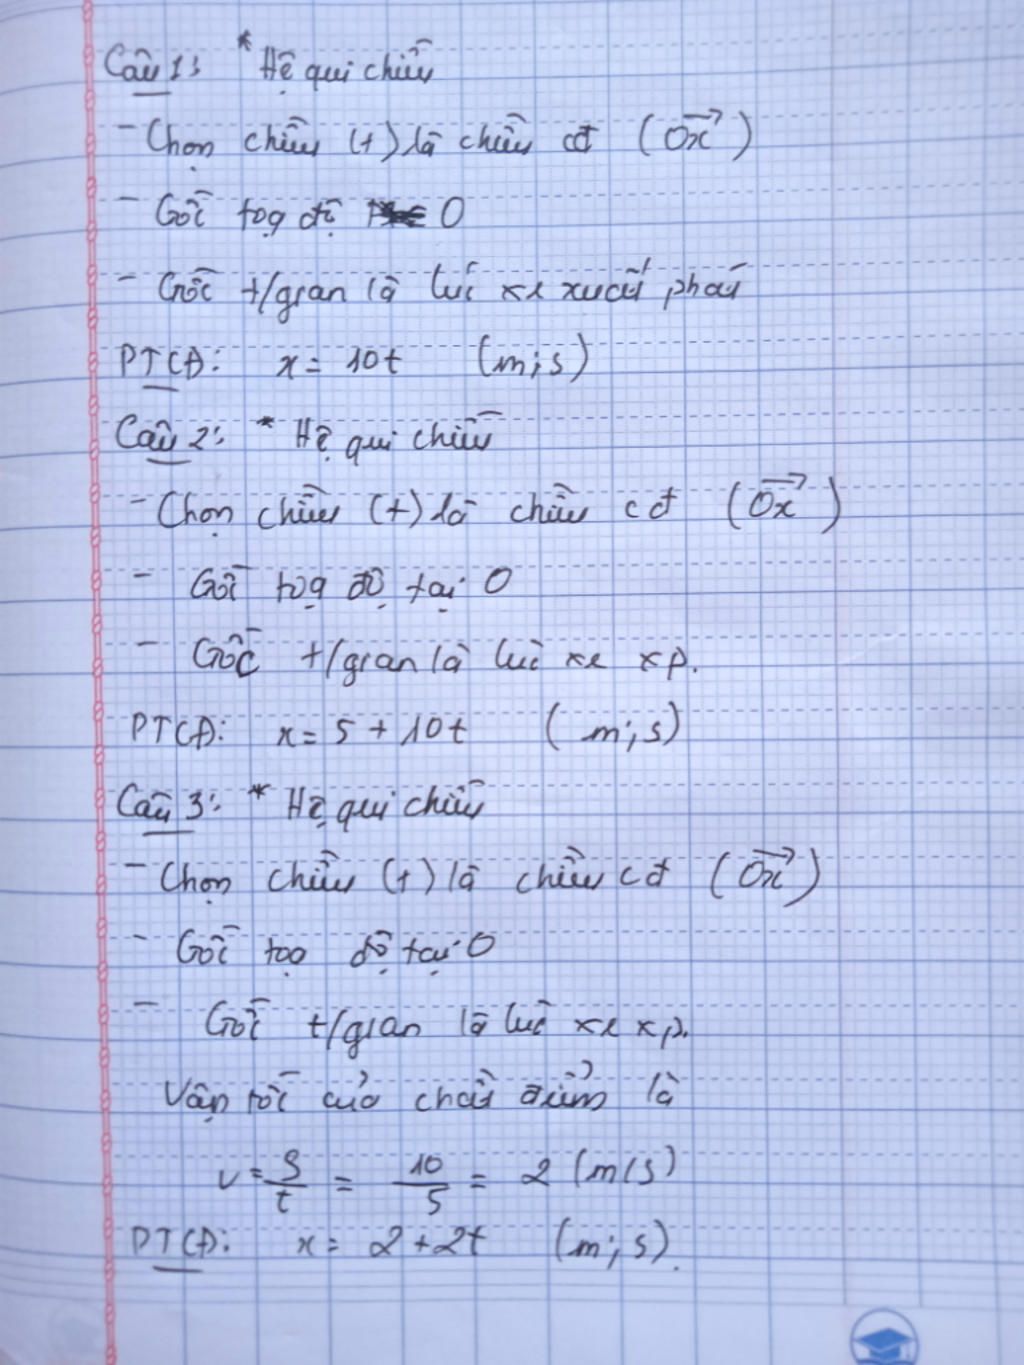 Câu 1: * Hệ qui chiếu
- Chọn chiều (+) là chiều cđ (Ox)
- Gốc toạ độ O
- Gốc t/gian là lúc xe xuất phát
PTCĐ: x = 10t (m; s)
Câu 2: * Hệ qui chiếu
- Chọn chiều (+) là chiều cđ (Ox)
- Gốc toạ độ tại O
- Gốc t/gian là lúc xe xp.
PTCĐ: x = 5 + 10t (m; s)
Câu 3: * Hệ qui chiếu
- Chọn chiều (+) là chiều cđ (Ox)
- Gốc toạ độ tại O
- Gốc t/gian là lúc xe xp.
Vận tốc của chất điểm là
v = S/t = 10/5 = 2 (m/s)
PTCĐ: x = 2 + 2t (m; s).